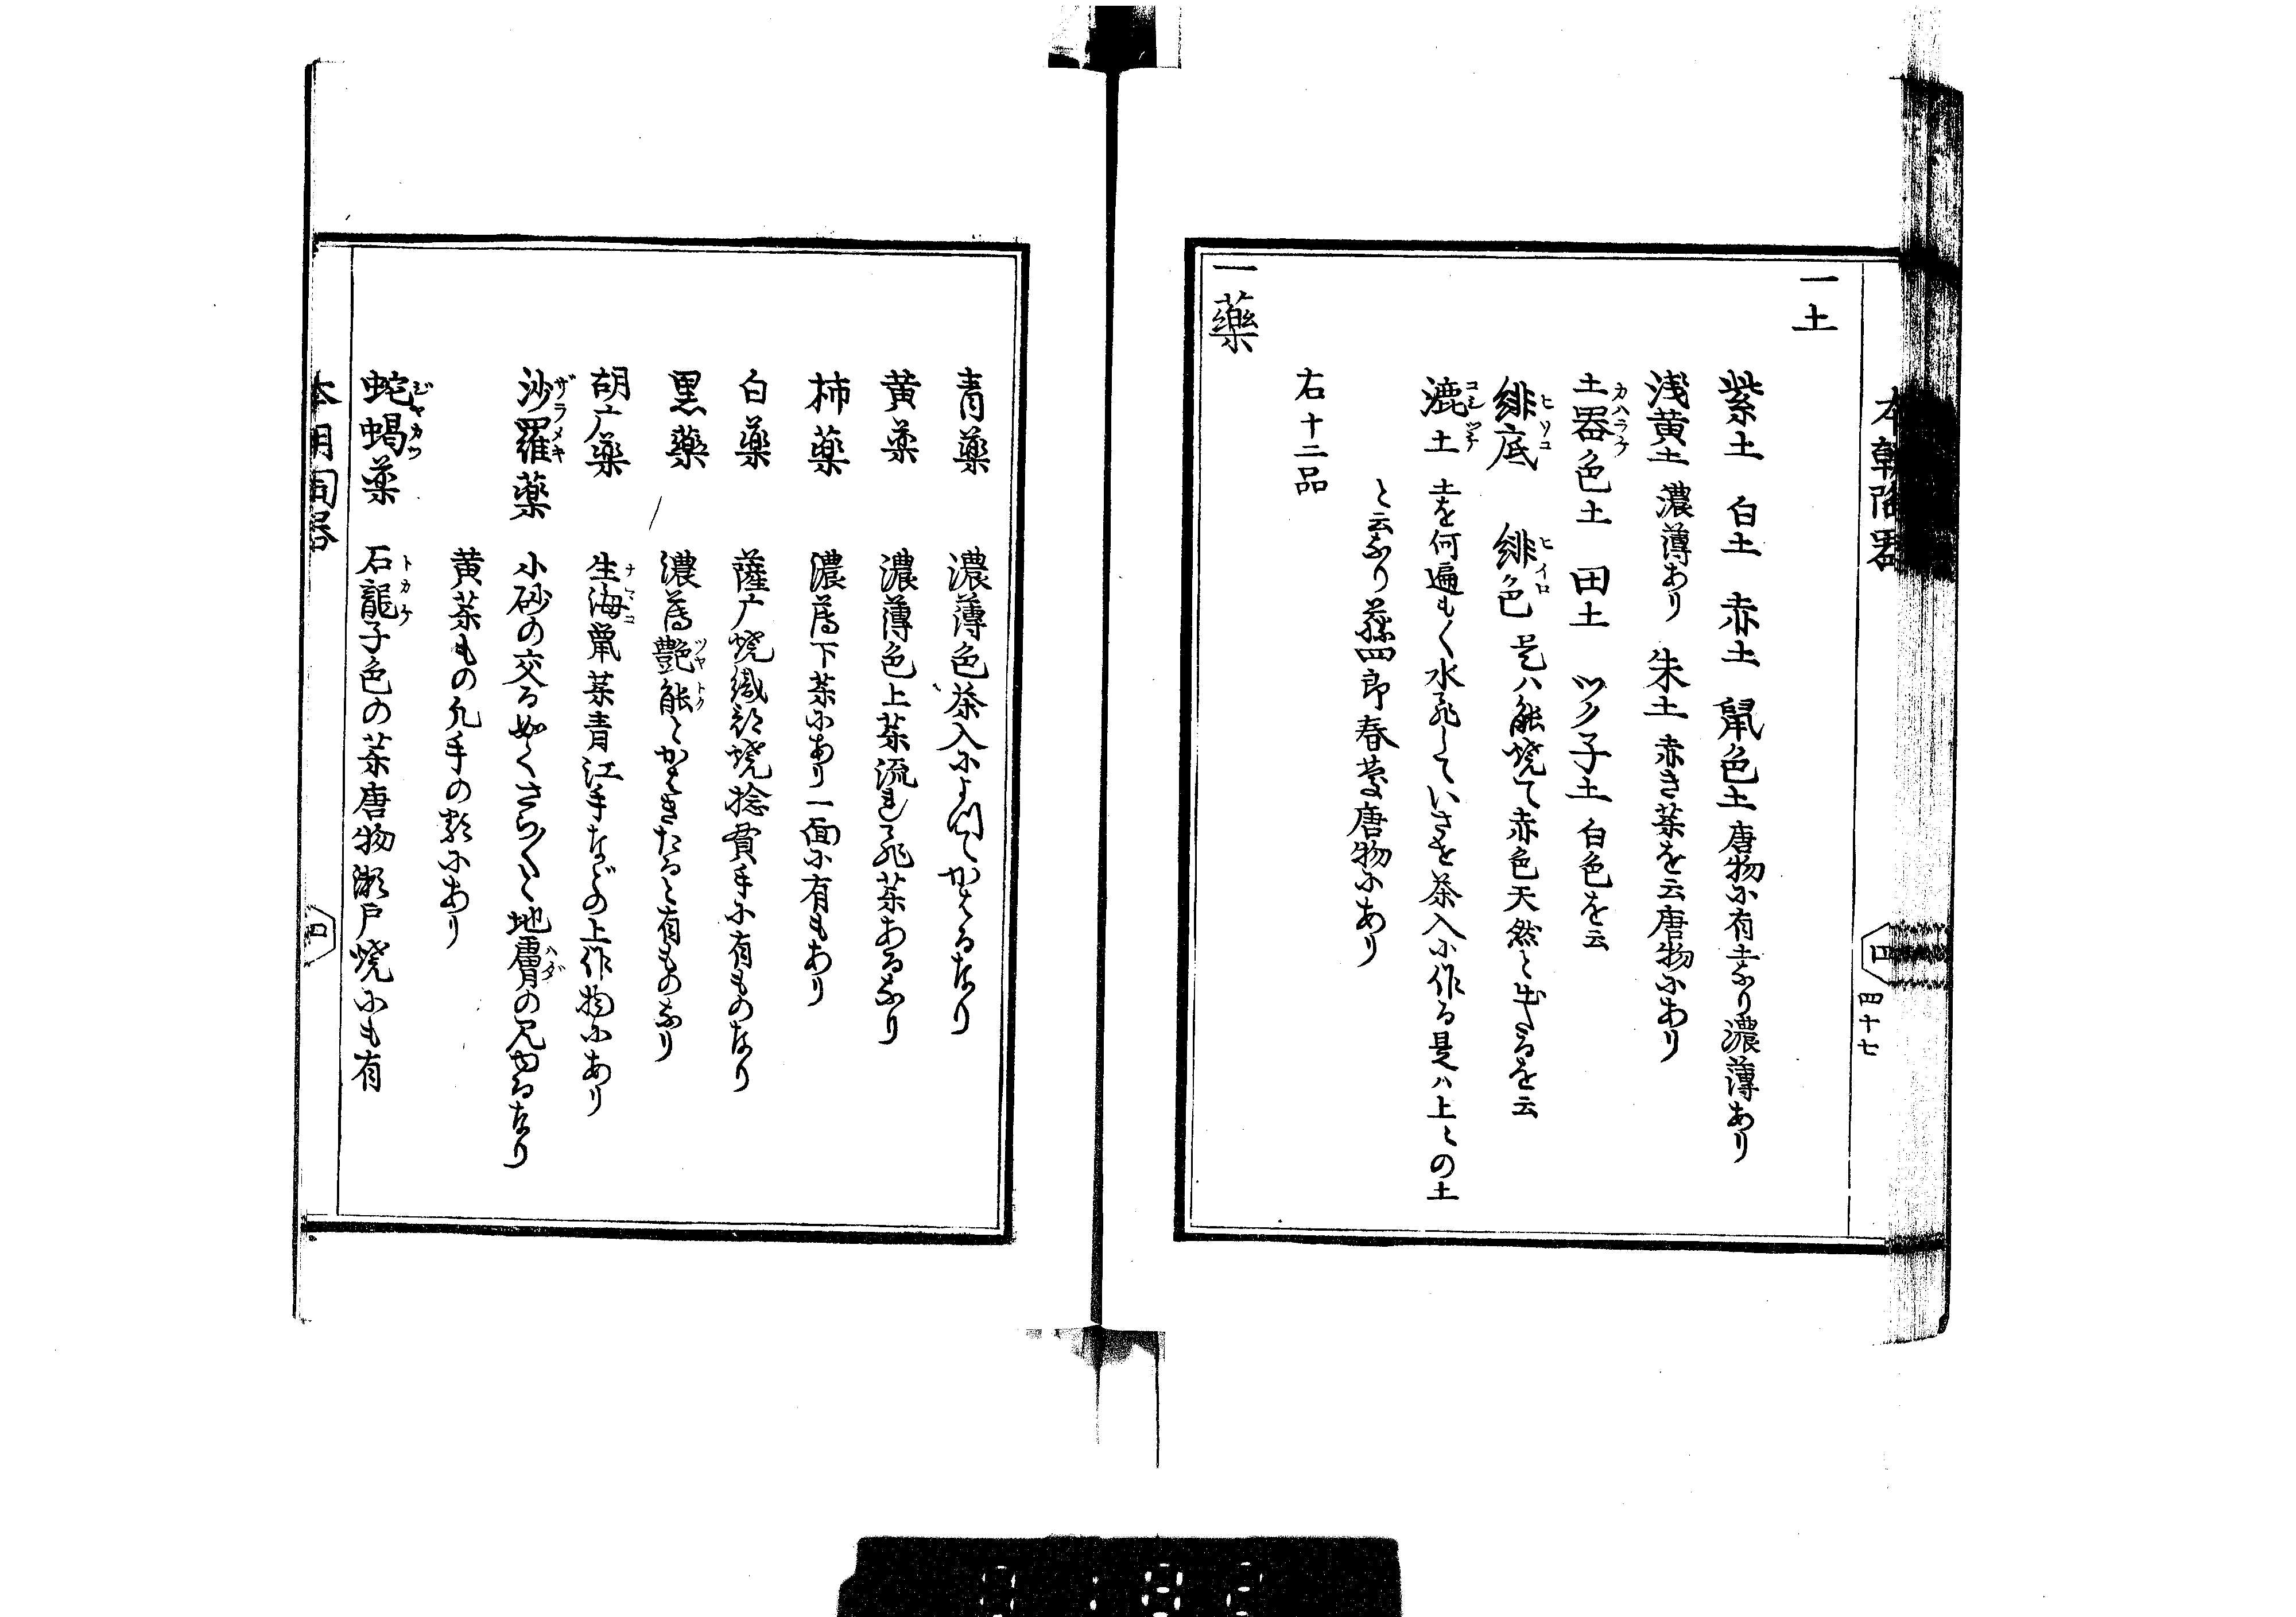 本朝陶器
四
四十七
一土
紫土 白土 赤土 鼠色土 唐物ニ有土なり濃薄あり
浅黄土 濃薄あり 朱土 赤き薬を云唐物ニあり
土器色土 田土 ツク子土 白色を云
カハラケ
緋底 緋色 是ハ能焼て赤色天然と出さるを云
ヒソコ ヒイロ
漉土 土を何遍もく水飛していさきを茶入ニ作る是ハ上々の土
コシツチ
と云なり藤四郎春慶唐物ニあり
右十二品
一藥
青藥 濃薄色茶入によりてかはるなり
黄薬 濃薄色上薬流し飛薬あるなり
柿藥 濃薄下薬ニあり一面ニ有もあり
白藥 薩广焼織部焼捻貫手ニ有ものなり
黒藥 濃薄艶能とかせきたると有ものなり
ツヤ トク
胡广藥 生海鼠薬青江手などの上作物ニあり
ナマコ
沙羅藥 小砂の交る如くさらくと地膚の見ゆるなり
ザラメキ ハダ
黄薬もの凡手の類ニあり
蛇蝎薬 石龍子色の薬唐物瀬戸焼ニも有
ジャカツ トカケ